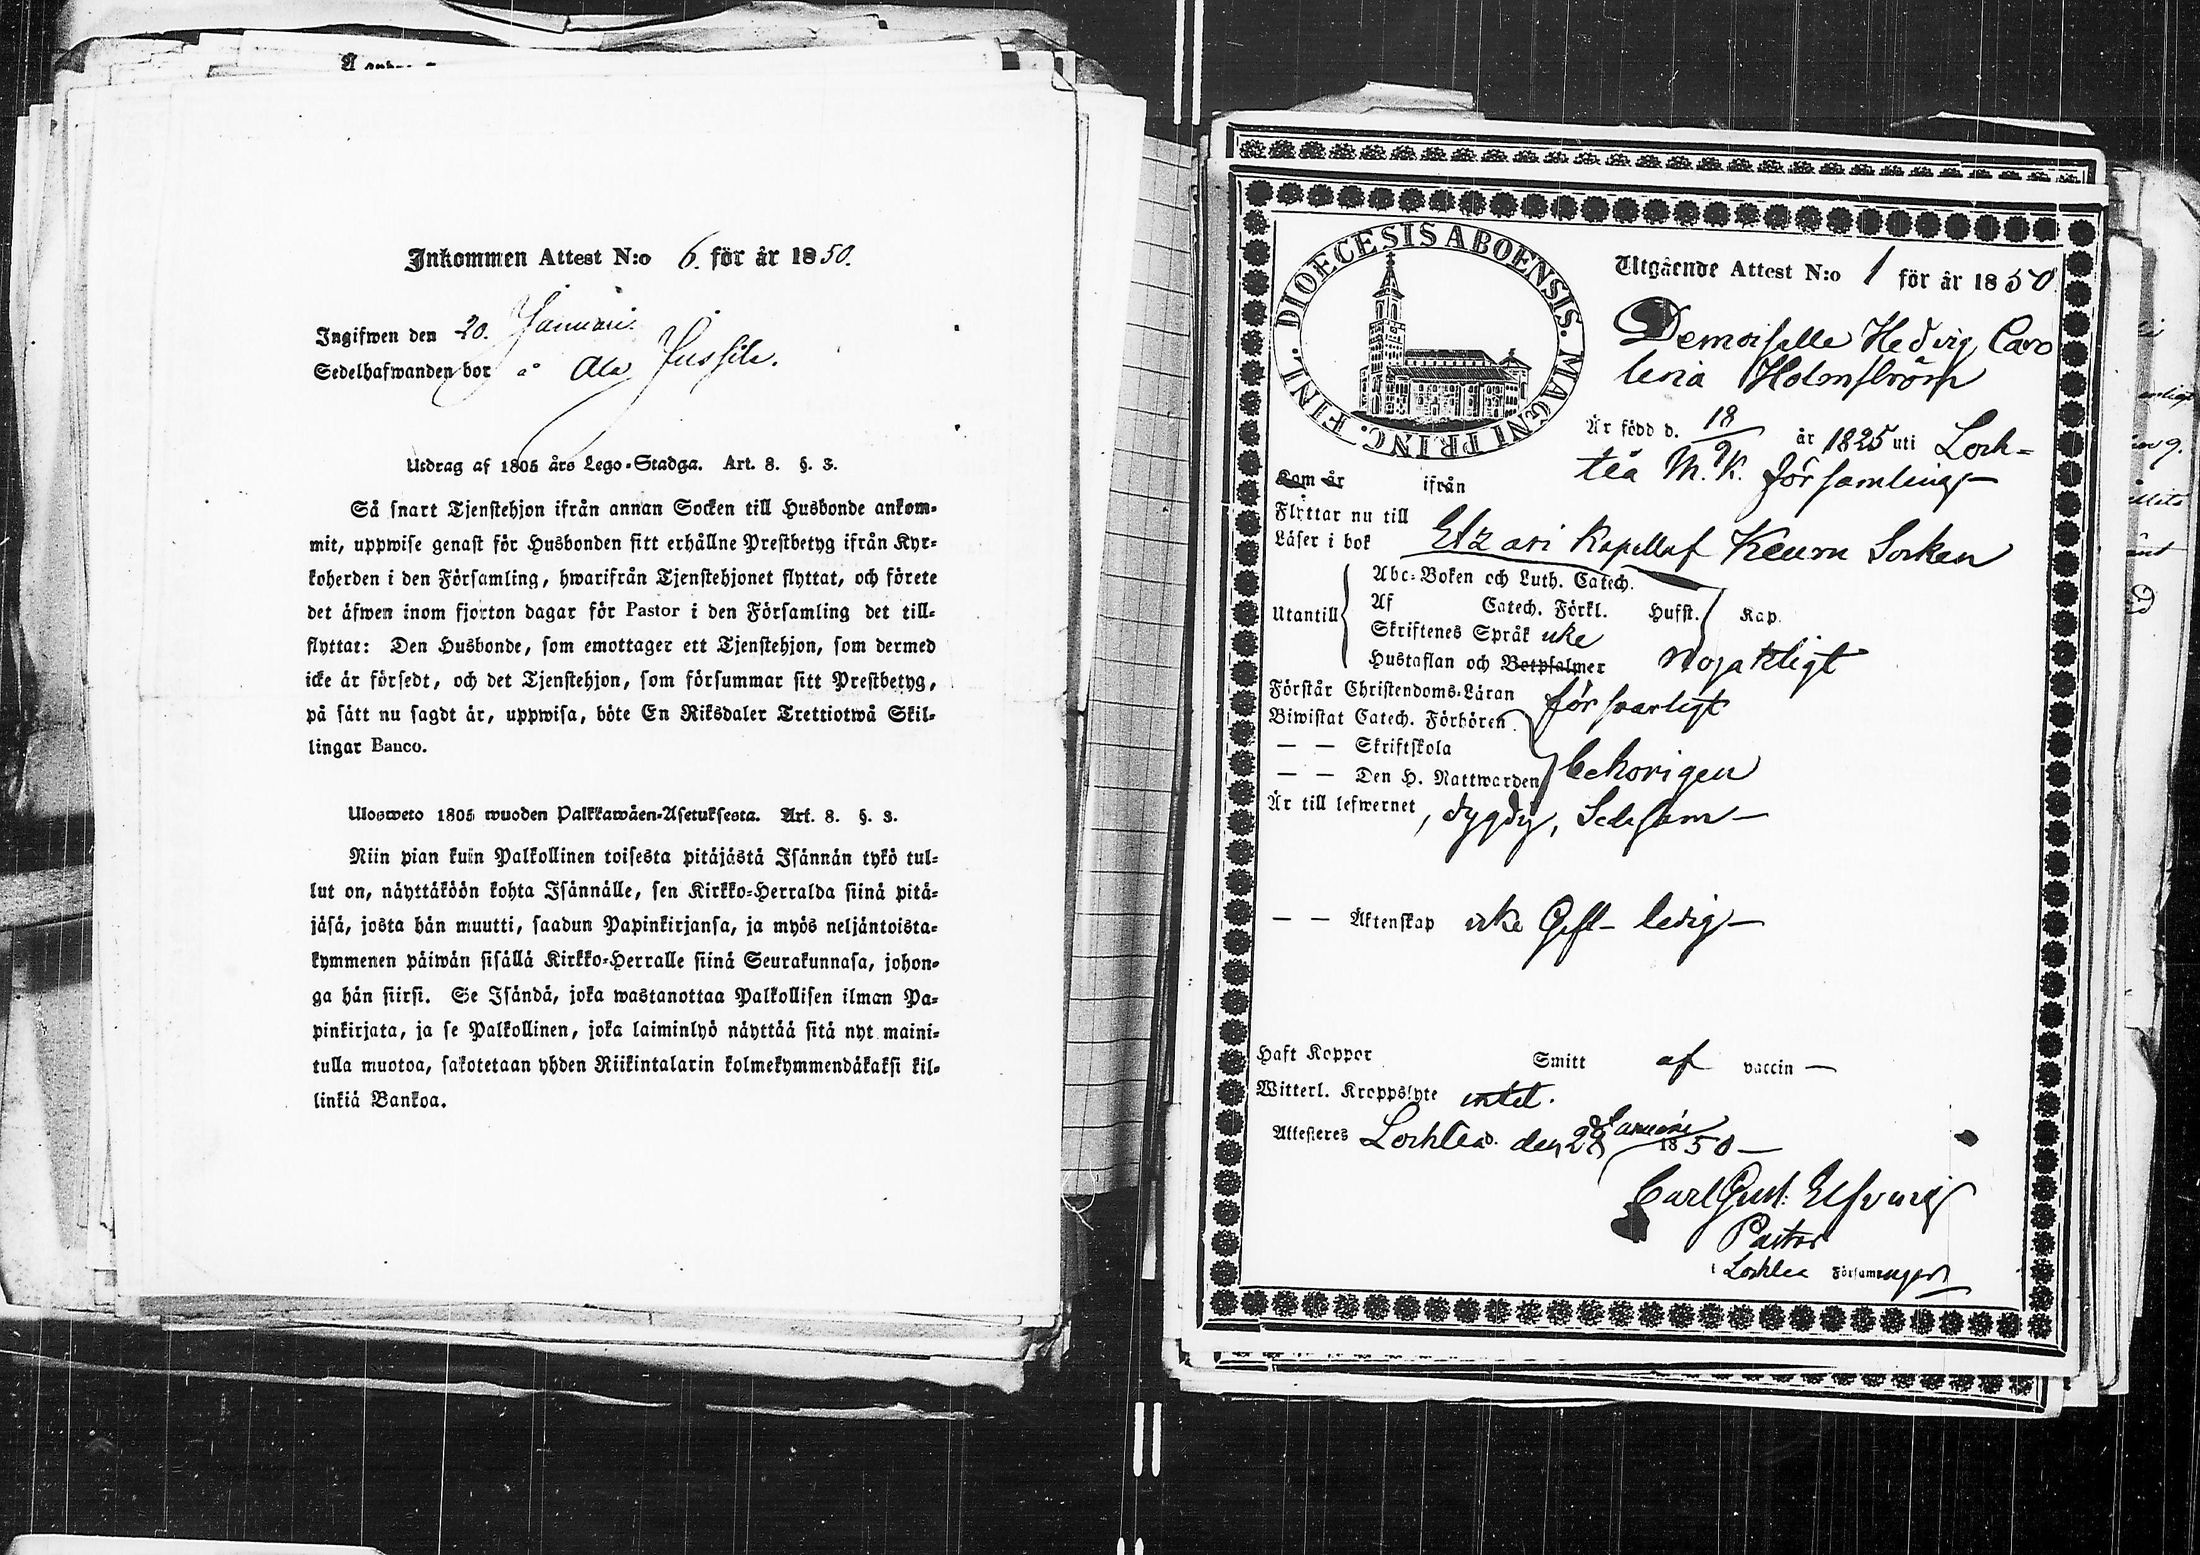 Inkommen Attest N:o 6. för år 1850.
Ingifwen den 20. Januari
Sedelhafwanden bor å Ala Jussila.
Utdrag af 1805 års Lego-Stadga. Art. 8. §. 3.
Så snart Tjenstehjon ifrån annan Socken till Husbonde ankom-
mit, uppwise genast för Husbonden sitt erhållne Prestbetyg ifrån Kyr-
koherden i den Församling, hwarifrån Tjenstehjonet flyttat, och förete
det äfwen inom fjorton dagar för Pastor i den Församling det till-
flyttat: Den Husbonde, som emottager ett Tjenstehjon, som dermed
icke är försedt, och det Tjenstehjon, som försummar sitt Prestbetyg,
på sätt nu sagdt är, uppwisa, böte En Riksdaler Trettiotwå Skil-
lingar Banco.
Ulosweto 1805 wuoden Palkkawäen-Asetuksesta. Art. 8. §. 3.
Niin pian kuin Palkollinen toisesta pitäjästä Isännän tykö tul-
lut on, näyttäköön kohta Isännälle, sen Kirkko-Herralda siinä pitä-
jäsä, josta hän muutti, saadun Papinkirjansa, ja myös neljäntoista-
kymmenen päiwän sisällä Kirkko-Herralle siinä Seurakunnasa, johon-
ga hän siirsi. Se Isändä, joka wastanottaa Palkollisen ilman Pa-
pinkirjata, ja se Palkollinen, joka laiminlyö näyttää sitä nyt maini-
tulla muotoa, sakotetaan yhden Riikintalarin kolmekymmendäkaksi kil-
linkiä Bankoa.
DIOECESIS ABOENSIS. MAGNI PRINC. FINL.
Utgående Attest N:o 1 för år 1850
Demoiselle Hedvig Caro
lina Holmström
Är född d. 18/9 år 1825 uti Loch-
teå M. K. församling
Kom år ifrån
Flyttar nu till Etzari Kapell af Keuru Socken
Läser i bok
Abc-Boken och Luth. Catech.
Utantill Af Catech. Förkl. Hufst. Kap.
Skriftenes Språk icke
Hustaflan och Botpsalmer nöjaktligt
Förstår Christendoms-Läran försvarligt
Biwistat Catech. Förhören
— — Skriftskola
— — Den H. Nattwarden behörigen
Är till lefwernet, dygdig, Sedesam
— — Äktenskap icke Gift ledig
Haft Koppor Smitt af vaccin
Witterl. Kroppslyte intet.
Attesteres Lochteå d. den 28 Januari 1850
Carl Gust. Elfving
Pastor
i Lochteå Församlingar